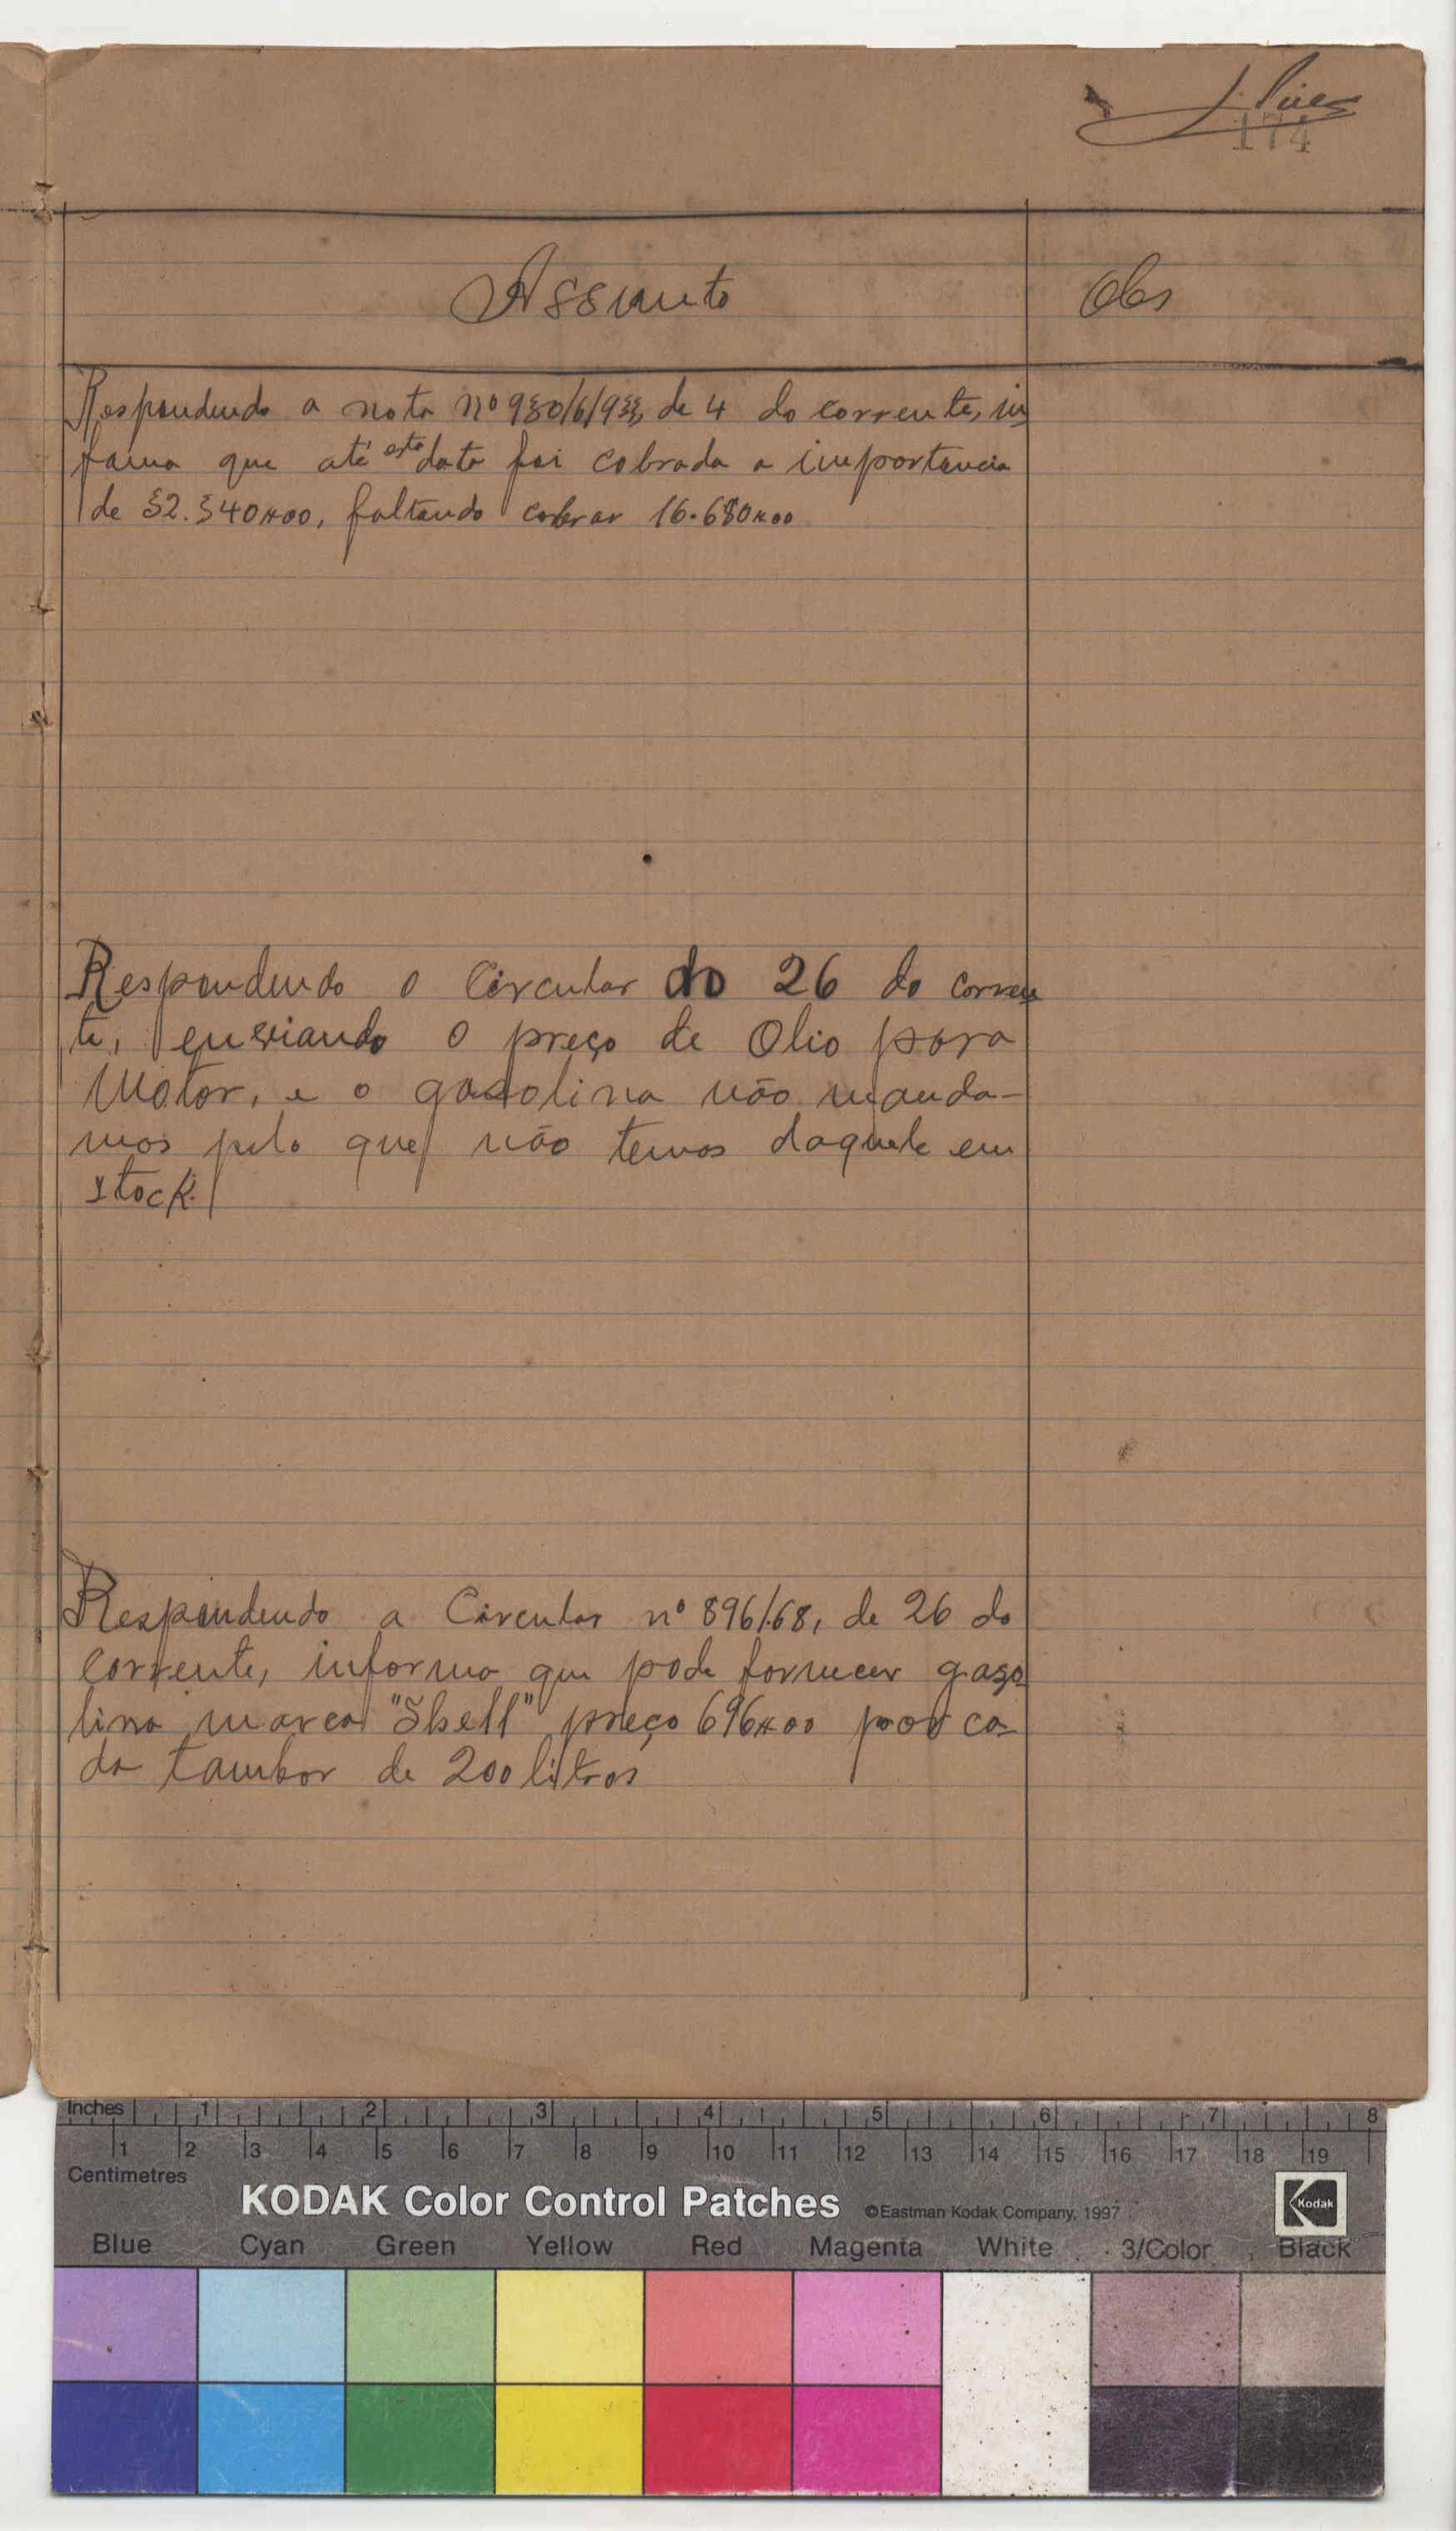 J. Pires
174
Assunto Obs
Respondendo a nota nº 980/6/933, de 4 do corrente, in
forma que até esta data foi cobrada a importancia
de 32.340$00, faltando cobrar 16.680$00
Respondendo o Circular do 26 do corren
te, enviando o preço de Olio para
Motor, e o gasolina não manda-
mos pelo que não temos daquele em
stock.
Respondendo a Circular nº 896/68, de 26 do
corrente, informo que pode fornecer gaso
lina marca "Shell" preço 696$00 por ca-
da tambor de 200 litros
Inches 1 2 3 4 5 6 7 8
1 2 3 4 5 6 7 8 9 10 11 12 13 14 15 16 17 18 19
Centimetres
KODAK Color Control Patches ©Eastman Kodak Company, 1997 Kodak
Blue Cyan Green Yellow Red Magenta White 3/Color Black